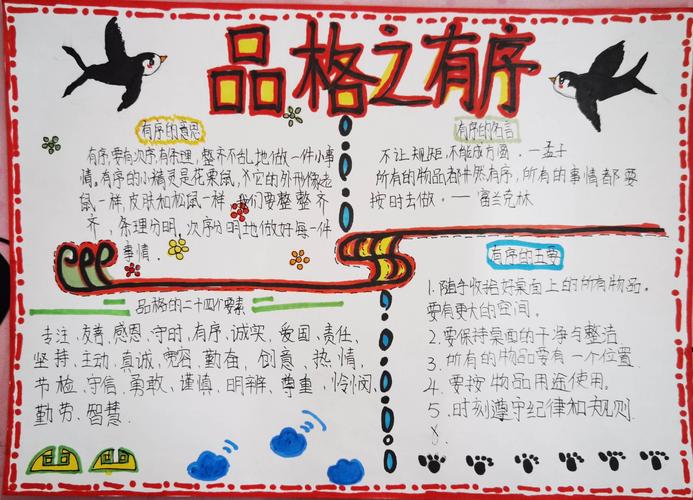 品格之有序
有序的意思
有序,要有次序,有条理,整齐不乱地做一件小事
情。有序的小精灵是花栗鼠,它的外形像老
鼠一样,皮肤和松鼠一样,我们要整整齐
齐,条理分明,次序分明地做好每一件
事情.
品格的二十四个要素
专注、友善、感恩、守时、有序、诚实、爱国、责任、
坚持、主动、真诚、宽容、勤奋、创意、热情、
节检、守信、勇敢、谨慎、明辨、尊重、怜悯、
勤劳、智慧.
有序的名言
不让规矩,不能成方圆.—孟子
所有的物品都井然有序,所有的事情都要
按时去做.—富兰克林
有序的五要
1.随手收拾好桌面上的所有物品。
要有更大的空间。
2.要保持桌面的干净与整洁
3.所有的物品要有一个位置.
4.要按物品用途使用。
5.时刻遵守纪律和规则